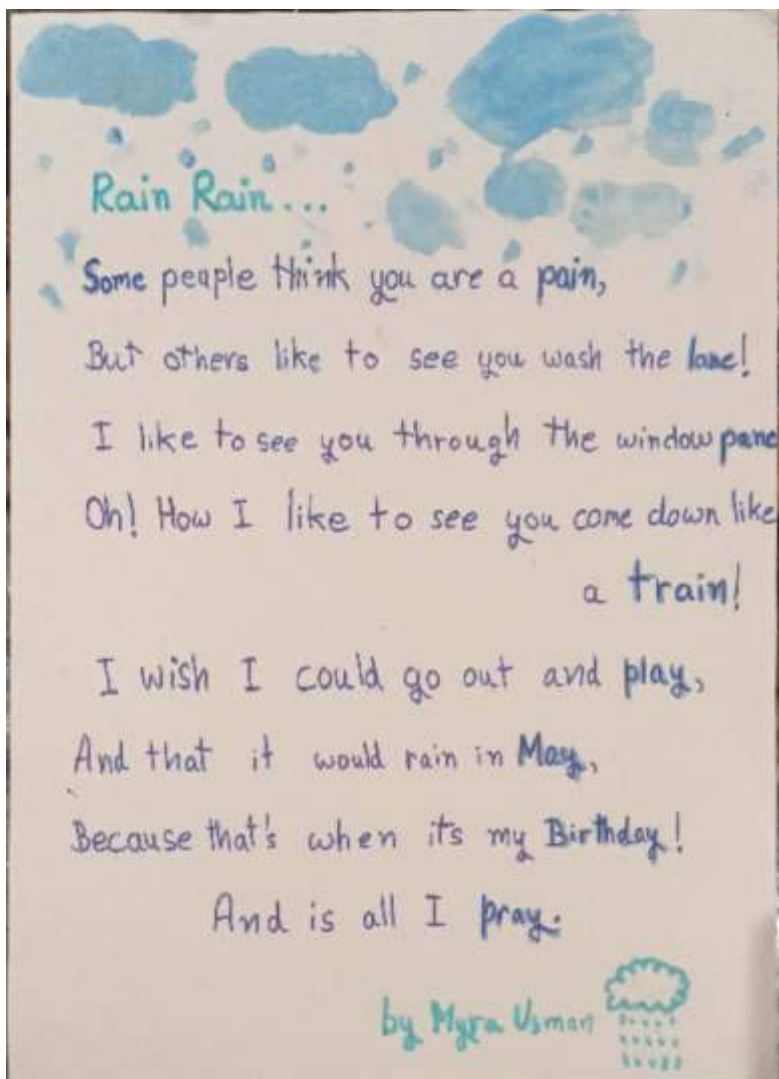 Rain Rain...
Some people think you are a pain,
But others like to see you wash the lane!
I like to see you through the window pane
Oh! How I like to see you come down like
a train!
I wish I could go out and play,
And that it would rain in May,
Because that's when its my Birthday!
And is all I pray.
by Myra Usman